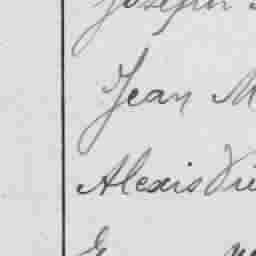 Joseph
Jean M
Alexis Vie